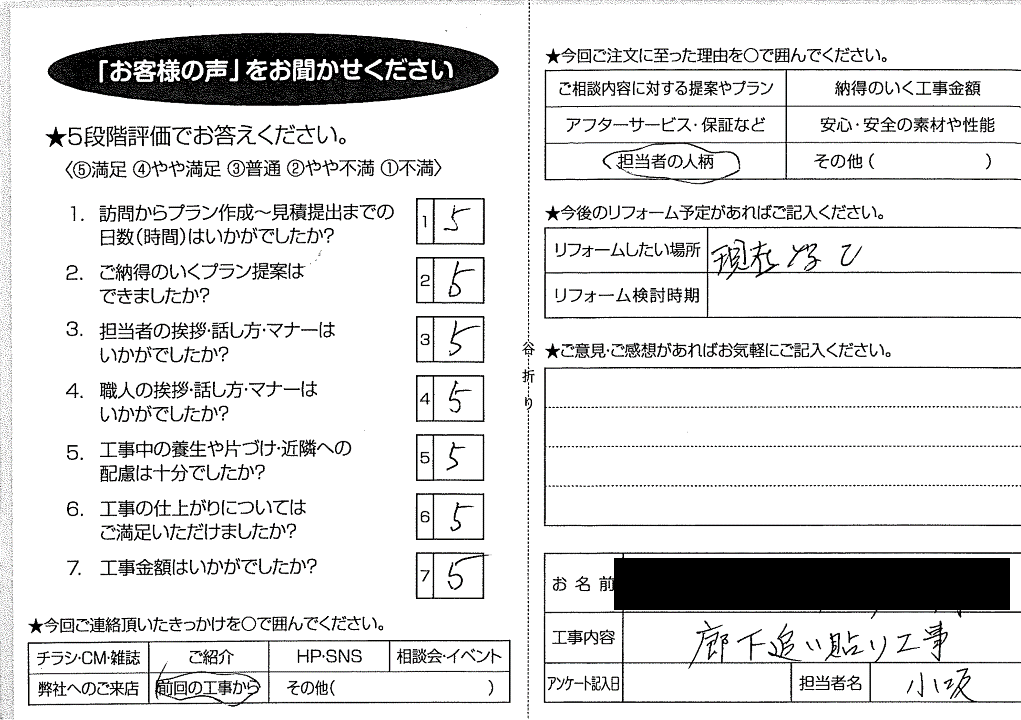 「お客様の声」をお聞かせください
★5段階評価でお答えください。
〈⑤満足 ④やや満足 ③普通 ②やや不満 ①不満〉
1. 訪問からプラン作成〜見積提出までの
日数(時間)はいかがでしたか?
1 5
2. ご納得のいくプラン提案は
できましたか?
2 5
3. 担当者の挨拶・話し方・マナーは
いかがでしたか?
3 5
4. 職人の挨拶・話し方・マナーは
いかがでしたか?
4 5
5. 工事中の養生や片づけ・近隣への
配慮は十分でしたか?
5 5
6. 工事の仕上がりについては
ご満足いただけましたか?
6 5
7. 工事金額はいかがでしたか?
7 5
★今回ご連絡頂いたきっかけを〇で囲んでください。
チラシ・CM・雑誌 ご紹介 HP・SNS 相談会・イベント
弊社へのご来店 前回の工事から その他( )
谷折り
★今回ご注文に至った理由を〇で囲んでください。
ご相談内容に対する提案やプラン 納得のいく工事金額
アフターサービス・保証など 安心・安全の素材や性能
担当者の人柄 その他( )
★今後のリフォーム予定があればご記入ください。
リフォームしたい場所 現在なし
リフォーム検討時期
★ご意見・ご感想があればお気軽にご記入ください。
お名前
工事内容 廊下追い貼り工事
アンケート記入日 担当者名 小坂